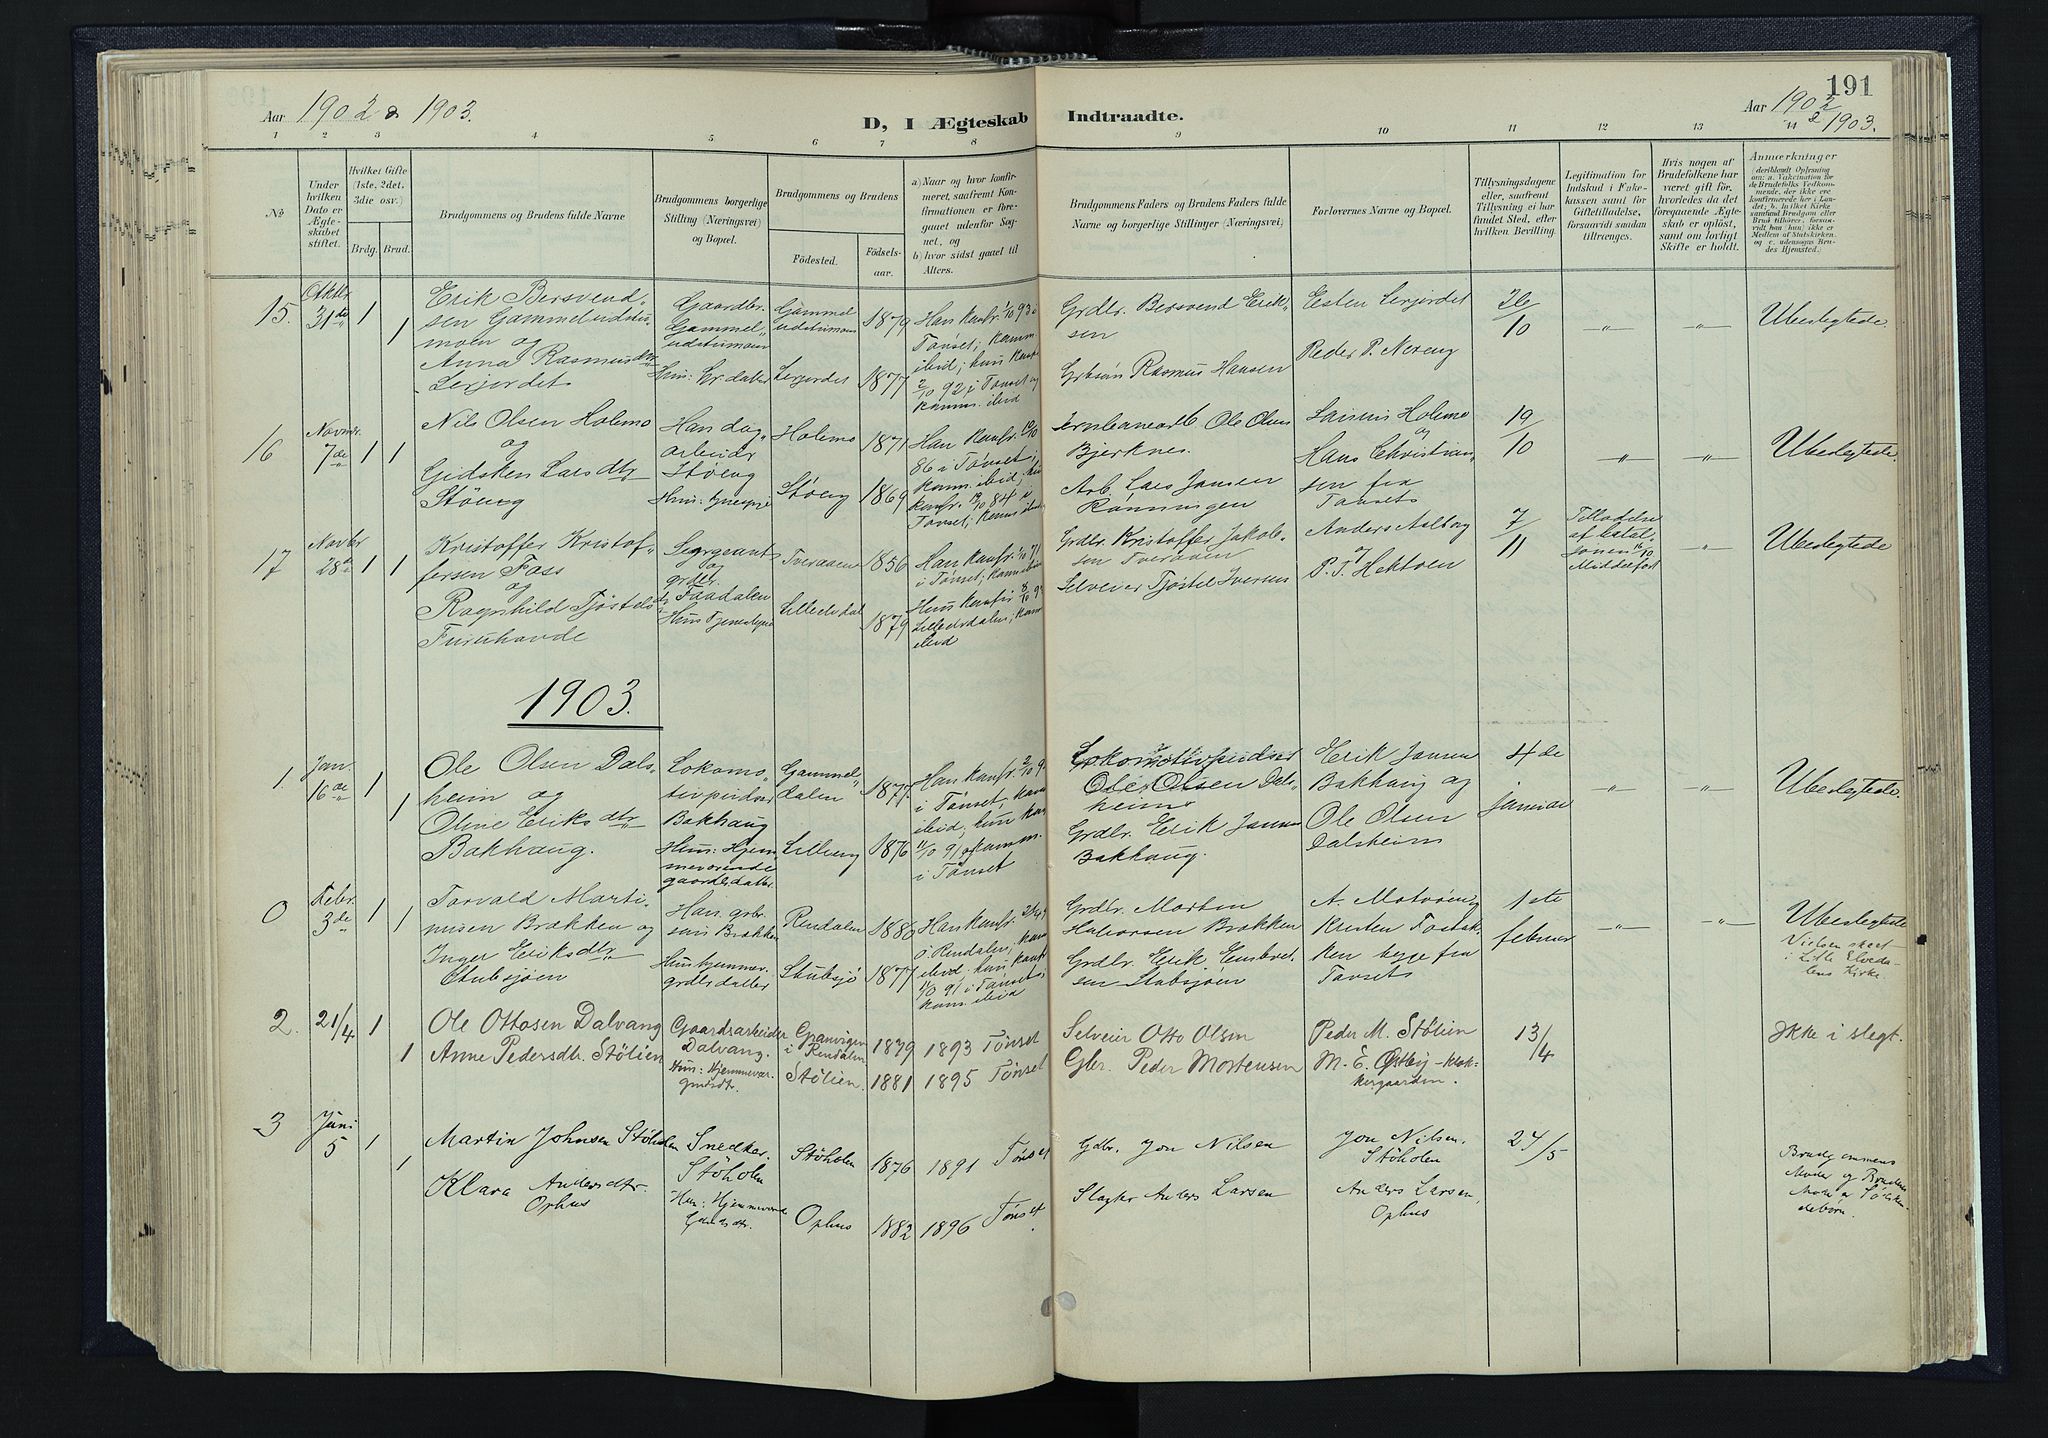 191
Aar 1902 & 1903.
D, I Ægteskab Indtraadte.
Aar 1902 & 1903.
1 2 3 4 5 6 7 8 9 10 11 12 13 14
No
Under hvilken Dato er Ægteskabet stiftet.
Hvilket Gifte (1ste, 2det, 3die osv.)
Brdg. Brud.
Brudgommens og Brudens fulde Navne
Brudgommens borgerlige Stilling (Næringsvei) og Bopæl.
Brudgommens og Brudens
Fødested.
Fødselsaar.
a) Naar og hvor konfirmeret, saafremt Konfirmationen er foregaaet udenfor Sognet, og
b) hvor sidst gaaet til Alters.
Brudgommens Faders og Brudens Faders fulde Navne og borgerlige Stillinger (Næringsvei)
Forlovernes Navne og Bopæl.
Tillysningsdagene eller, saafremt Tillysning ei har fundet Sted, efter hvilken Bevilling.
Legitimation for Indskud i Enkekassen samt for Giftetilladelse, forsaavidt saadan tiltrænges.
Hvis nogen af Brudefolkene har været gift før, hvorledes da det foregaaende Ægteskab er opløst, samt om lovligt Skifte er holdt.
Anmærkninger
15.
Oktbr 31de
1 1
Erik Bersvend-
sen Gammeludstu-
moen og
Anna Rasmusdtr
Lerjordet
Gaardbr.
Gammel-
udstumoen
Hun: Gr.datter
Gammel
udstumoen
Lerjordet
1879
1877
Han konfr. 1/10 93 i
Tønset; komm.
ibid; hun konf.
2/10 92 i Tønset og
komm. ibid
Grdbr. Bersvend Erik-
sen
Rasmus Hansen
Esten Lerjordet
Peder P. Nereng
26/10
"
"
Ubeslegtede.
16
Novmr. 7de
1 1
Nils Olsen Holemo
og
Gidsken Larsdtr
Støeng
Han dag-
arbeidr
Støeng
Holemo
Støeng
1871
1869
Han konfr.
86 i Tønset;
komm. ibid;
konfr. 84 i
Tønset; komm. ibid
Jernbanearb. Ole Olsen
Bjerknes.
Arb. Lars Jansen
Rønningen
Holemo
og
Hans Christian-
sen fra
Tønset
19/10
"
"
Ubeslegtede.
17
Novbr 28de
1 1
Kristoffer Kristof-
fersen Foss
og
Ragnhild Tjøstelsdtr
Furuhovde
Sergeant
og
grdbr.
Faadalen
Hun Tjenestepige
Tveraaen
Lilleelvdal
1856
1879
Han konfr. 1/10 71
i Tønset; komm. ibid
Hun konfir.
Lilleelvdalen; kom.
ibid
Grdbr. Kristoffer Jakob-
sen Tveraaen
Selveier Tjøstel Iversen
Anders Aalborg
og
P. T. Hektoen
7/11
Tilladelse
af batal-
jonen 16/10
"
Ubeslegtede
1903.
1.
Jan. 16de
1 1
Ole Olsen Dals-
heim og
Oline Eriksdtr
Bakhaug.
Lokomo-
tivpudser
Bakhaug
Hun: Hjem-
meværende
gaardbr.datter
Gammel-
dalen
Lilleeng
1877
1876
Han konfr.
i Tønset, kom.
ibid; hun kon.
11/10 91 og komm.
i Tønset
Lokomotivpudser
Ole Olsen Dals-
heim
Grdbr. Erik Jansen
Bakhaug.
Erik Jansen
Bakhaug og
Ole Olsen
Dalsheim
4de
januar
"
"
Ubeslegtede.
0
Febr. 3de
1 1
Torvald Marti-
nusen Brækken og
Inger Eriksdtr.
Stubsjøen
Han: grbr.
søn Brækken
Hun hjemmev.
grdbrs datter
Rendalen
Stubsjø
1880
1877
Han konfr.
i Rendalen; kom
ibid; hun konf
11/10 91 i Tønset,
kom. ibid
Grdbr. Morten
Halvorsen Brækken
Grdbr. Erik Embret-
sen Stubsjøen
A. Motrøeng
Kristen Fostbæk-
ken begge fra
Tønset
1ste
februar
"
"
Ubeslegtede
Vielsen skeet
i Lille Elveda-
lens Kirke.
2.
21/4
1 1
Ole Ottosen Dalvang
Anne Pedersdtr. Stølien
Gaardsarbeider
Dalvang.
Hun: Hjemmevær.
gmdsdt.
Granvigen
i Rendalen
Stølien.
1879
1881
1893 Tønset
1895 Tønset
Selveier Otto Olsen
Gbr. Peder Mortensen
Peder M. Stølien
M. E. Østby - Klok-
kergaarden.
13/4
Ikke i slegt.
3
Juni 5
1 1
Martin Johnsen Støholen
Klara Andersdtr.
Ophus
Snedker.
Støholen
Hun: Hjemmevær.
Gmdsdtr.
Støholen
Ophus
1876
1882
1891 Tønset
1896 Tønset.
Gdbr. Jon Nilsen
Slagter Anders Larsen
Jon Nilsen.
Støholen
Anders Larsen,
Ophus
24/5
Brudgommens
Moder og Brudens
Moder er Søsken-
debørn.